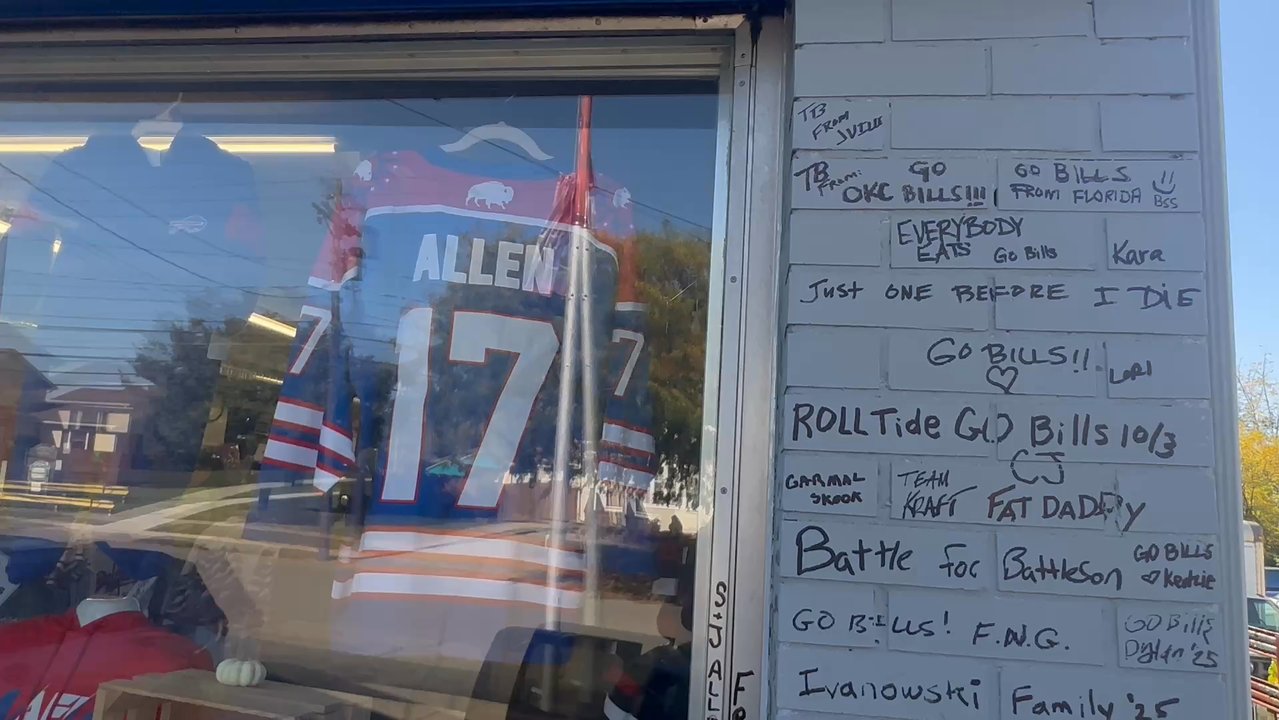 ALLEN
17
7
7
TB
FROM
JVILLE
TB
From:
GO
OKC BILLS!!!
GO BILLS
FROM FLORIDA
BSS
EVERYBODY
EATS Go Bills
Kara
Just ONE BEFORE I DIE
GO BILLS!!
LORI
ROLL Tide GO Bills 10/3
CJ
GARMAL
SKOOK
TEAM
KRAFT
FAT DADDY
Battle for Battleson
GO BILLS
Kedzie
GO BILLS! F.N.G.
GO Bills
Dylan '25
Ivanowski Family '25
S+J ALL